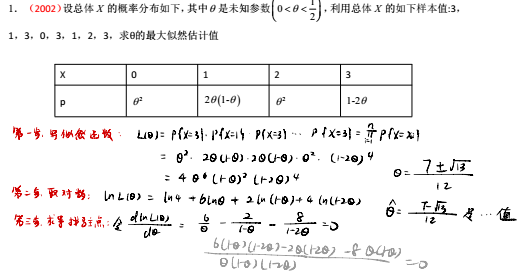 1. (2002)设总体 X 的概率分布如下,其中 θ 是未知参数(0<θ<1/2),利用总体 X 的如下样本值:3,
1,3,0,3,1,2,3,求θ的最大似然估计值
X 0 1 2 3
p θ² 2θ(1-θ) θ² 1-2θ
第一步,写似然函数: L(θ) = P{X=3}·P{X=1} P{X=3} ··· P{X=3} = ∏ P{X=xi}
= θ²· 2θ(1-θ)·2θ(1-θ)·θ²· (1-2θ)⁴
= 4θ⁶(1-θ)²(1-2θ)⁴
θ = 7±√13 / 12
第二步,取对数: ln L(θ) = ln4 + 6lnθ + 2ln(1-θ) + 4ln(1-2θ)
第三步,求导 令 dlnL(θ)/dθ = 6/θ - 2/(1-θ) - 8/(1-2θ) = 0
θ̂ = 7-√13 / 12 是 ··· 值
6(1-θ)(1-2θ)-2θ(1-2θ)-8θ(1-θ) / θ(1-θ)(1-2θ) = 0